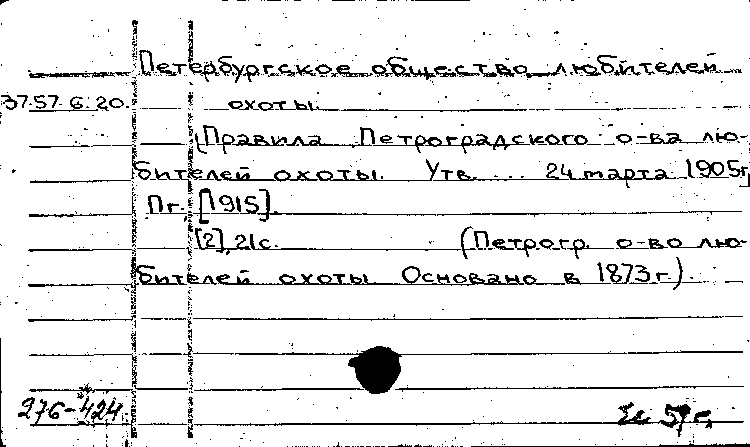 Петербургское общество любителей
37.57.6.20. охоты.
[Правила Петроградского о-ва лю-
бителей охоты. Утв. ... 24 марта 1905г.
Пг. [1915].
[2], 21с. (Петрогр. о-во лю-
бителей охоты. Основано в 1873г.).
276-424